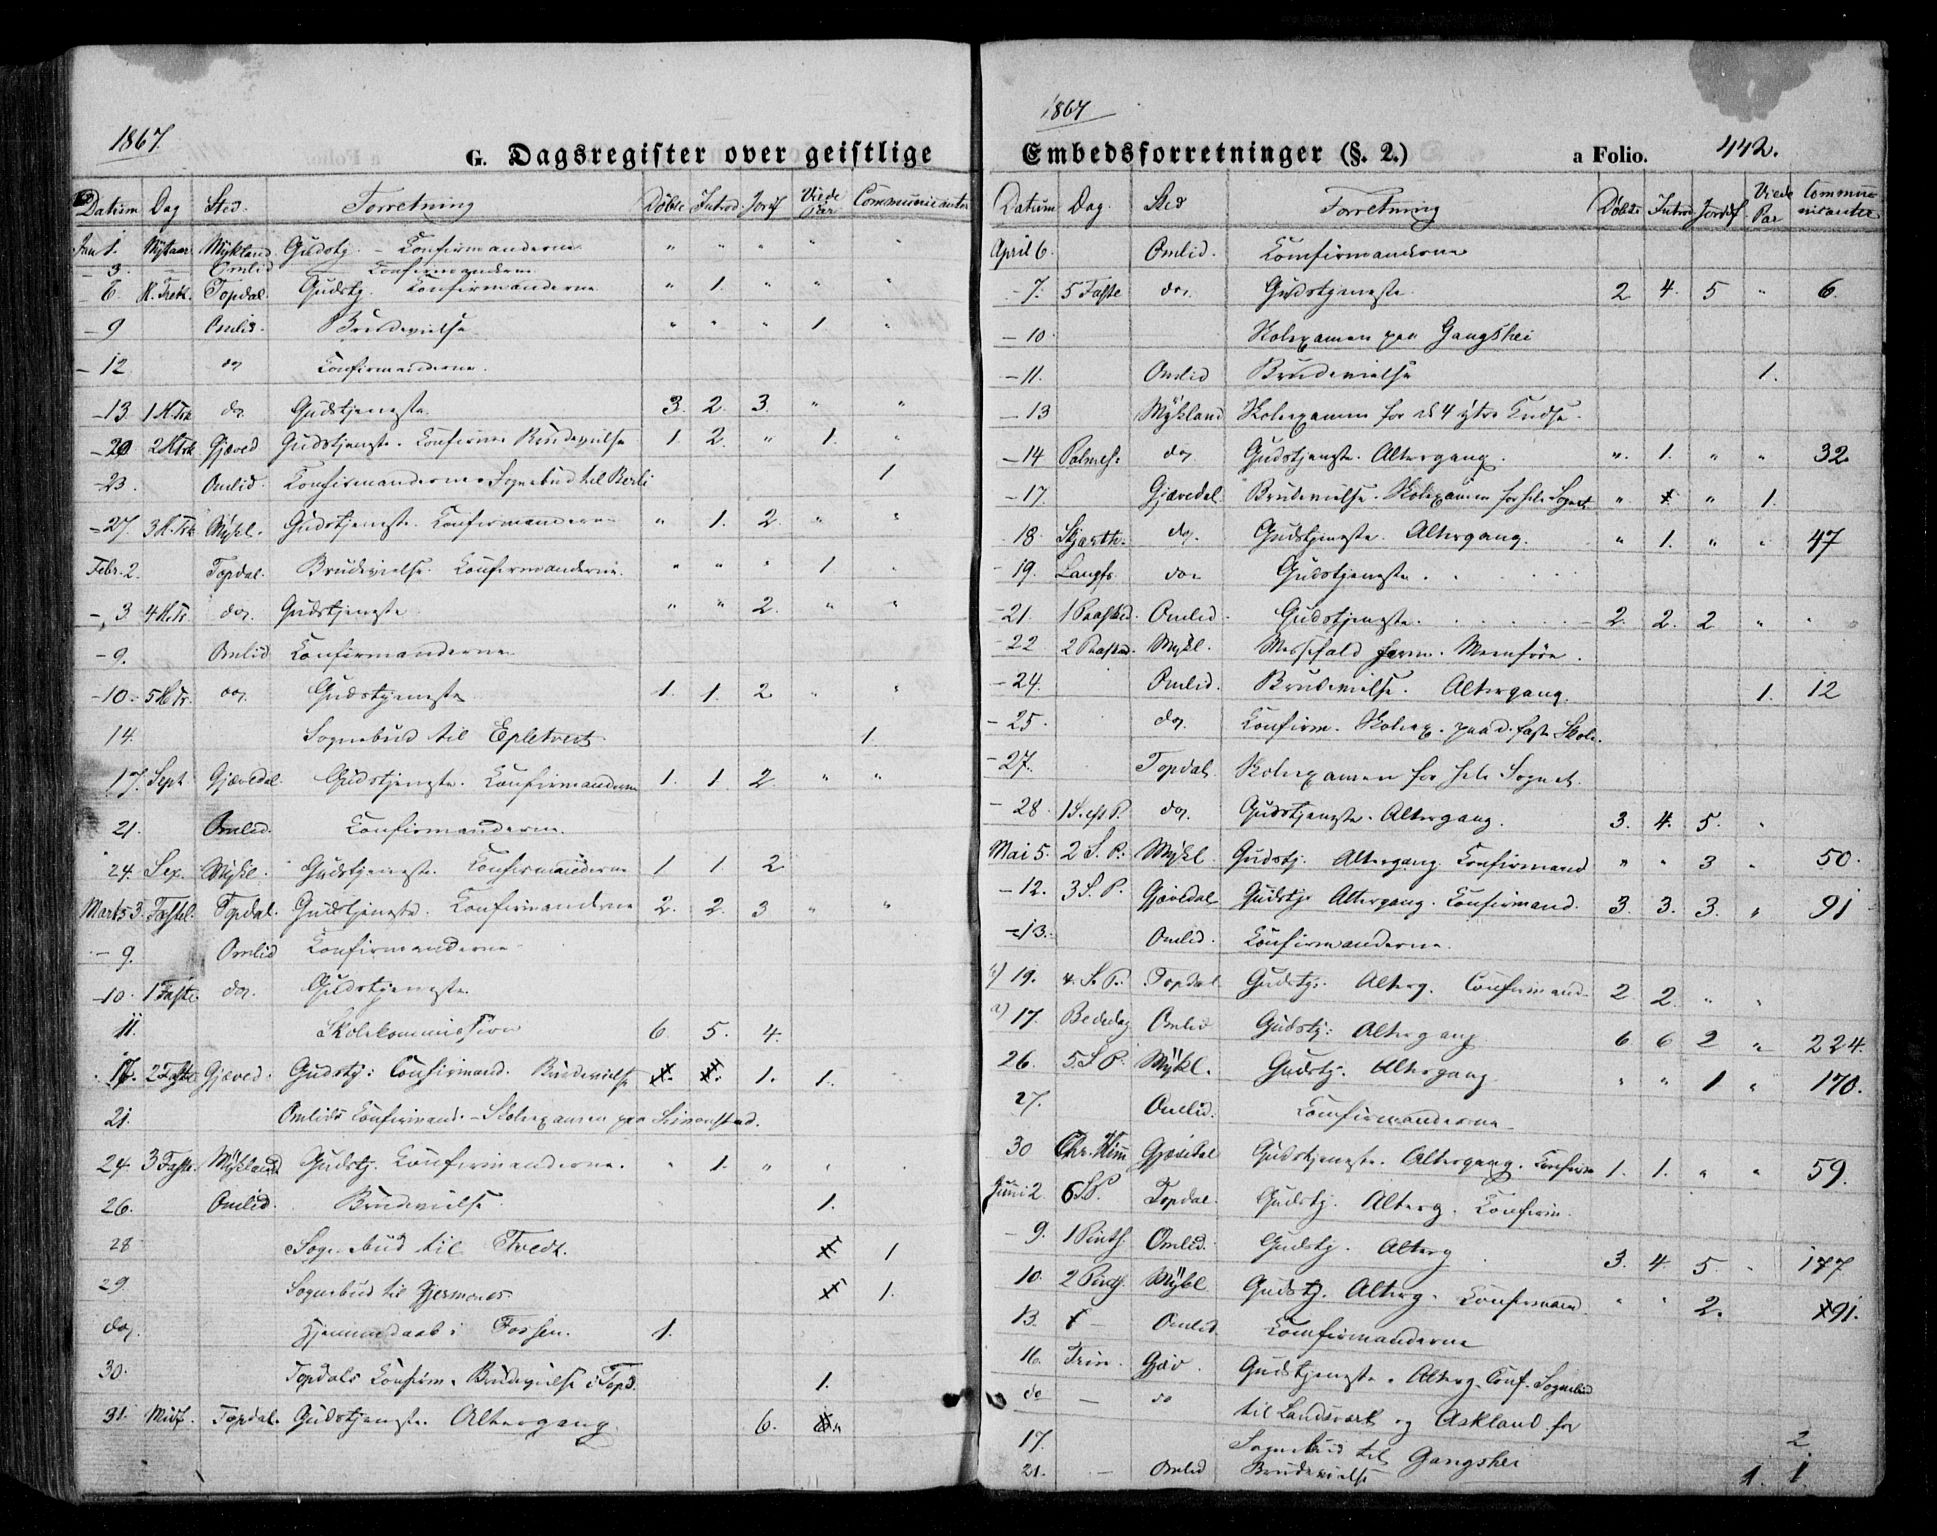 1867.
G. Dagsregister over geistlige
Datum Dag Sted. Forretning Döbte Introd. Jordf. Viede Par Communicanter
Jan 1. Nytaar Mykland Gudstj. - Confirmanderne " " " " "
- 3. - Omlid - Confirmanderne
- 6 H. Trek. Topdal. Gudstj. Confirmanderne " 1. " " "
- 9 Omlid. Brudevielse " " " 1. "
- 12 do Confirmanderne.
- 13 1 H. Trk. do Gudstjeneste. 3. 2. 3. " "
- 20 2 H Trk Gjæved Gudstjenste. Confirm. Brudevielse 1. 2. " 1. "
- 23. Omlid. Confirmanderne. Sognebud til Berli 1
- 27. 3 H. Trk. Mykl. Gudstjeneste. Confirmanderne " 1. 2. " "
Febr. 2. Topdal. Brudevielse. Confirmanderne. " " " 1 "
- 3 4 H. Tr. do. Gudstjeneste. " " 2. " "
- 9. Omlid Confirmanderne
- 10. 5 H Tr. do. Gudstjeneste 1. 1. 2 " "
14. Sognebud til Epletvedt 1
17. Sept. Gjævedal. Gudstjeneste. Confirmanderne 1. 1. 2. " "
21. Omlid. Confirmanderne.
24. Sex. Mykl. Gudstjeneste. Confirmanderne 1 1. 2
Marts 3. Fastel. Topdal. Gudstjeneste. Confirmanderne 2. 2. 3 " "
- 9. Omlid Confirmanderne
- 10. 1 Faste. do. Gudstjeneste.
11. Skolekommission 6. 5. 4.
17. 2 Faste Gjæved. Gudstj: Confirmand. Brudevielse 1. 1.
21. Omlids Confirmand. - Skolexamen paa Simonstad.
24. 3 Faste. Mykland Gudstj. Confirmanderne. " 1. " " "
26. Omlid. Brudevielse. 1.
28 Sognebud til Tvedt. 1
29. Sognebud til Gjermones 1.
do. Hjemmedaab i Fossen. 1.
30. Topdals Confirm. Brudevielse i Topd. 1.
31. Midf. Topdal. Gudstjenste. Altergang 6.
1867
Embedsforretninger (§. 2.) a Folio. 442.
Datum Dag. Sted Forretning Döbte Introd Jordf Viede Par Communicanter
April 6. Omlid. Confirmanderne
- 7. 5 Faste do. Gudstjeneste. 2 4. 5 " 6.
- 10. Skolexamen paa Gangshei
- 11. Omlid Brudevielse 1.
- 13 Mykland Skolexamen for de 4 ytre Kredse.
- 14 Palmes. do. Gudstjenste. Altergang. " 1. " " 32.
- 17. Gjævedal. Brudevielse. Skolexamen for hele Sognet " " 1.
18. Skjærth. do. Gudstjeneste. Altergang. " 1. " " 47
- 19. Langfr. do. Gudstjeneste.
- 21. 1 Paasked. Omlid. Gudstjeneste. 2. 2. 2 " "
- 22 2 Paasked. Mykl. Messefald
- 24. Omlid. Brudevielse. Altergang. 1. 12
- 25. do. Confirm. Skolex. paa d. faste Skole.
- 27. Topdal Skolexamen for hele Sognet.
- 28. 1 S. eft P. do. Gudstjeneste. Altergang. 3. 4. 5. "
Mai 5. 2 S. P. Mykl. Gudstj. Altergang. Confirmand " " 3 " 50.
- 12. 3 S. P. Gjævedal Gudstj. Altergang. Confirmand. 3. 3. 3. " 91
- 13. Omlid. Confirmanderne.
19. 4. S. P. Topdal Gudstj. Alterg. Confirmand. 2 2. " "
a) 17. Bededag Omlid Gudstj: Altergang 6 6 2 " 224.
26. 5. S P. Mykl. Gudstj. Altergang. " " 1 " 170.
27. Omlid. Confirmanderne
30 Chr. Him Gjævedal Gudstjeneste. Altergang. Confirm 1. 1. " " 59.
Juni 2 6 S P. Topdal. Gudstj. Alterg. Confirm.
- 9. 1 Pints. Omlid. Gudstj. Alterg 3. 4. 5. " 177
10. 2 Pints. Mykl Gudstj. Alterg. Confirmand. " " 2. 91.
13. - Omlid Confirmanderne
16. Trin. Gjæv. Gudstjeneste. Alterg. Conf. Sognebud
do - do til Landsverk og Askland for 2
17. Sognebud til Gangshei 1.
21. - Omlid Brudevielse 1.